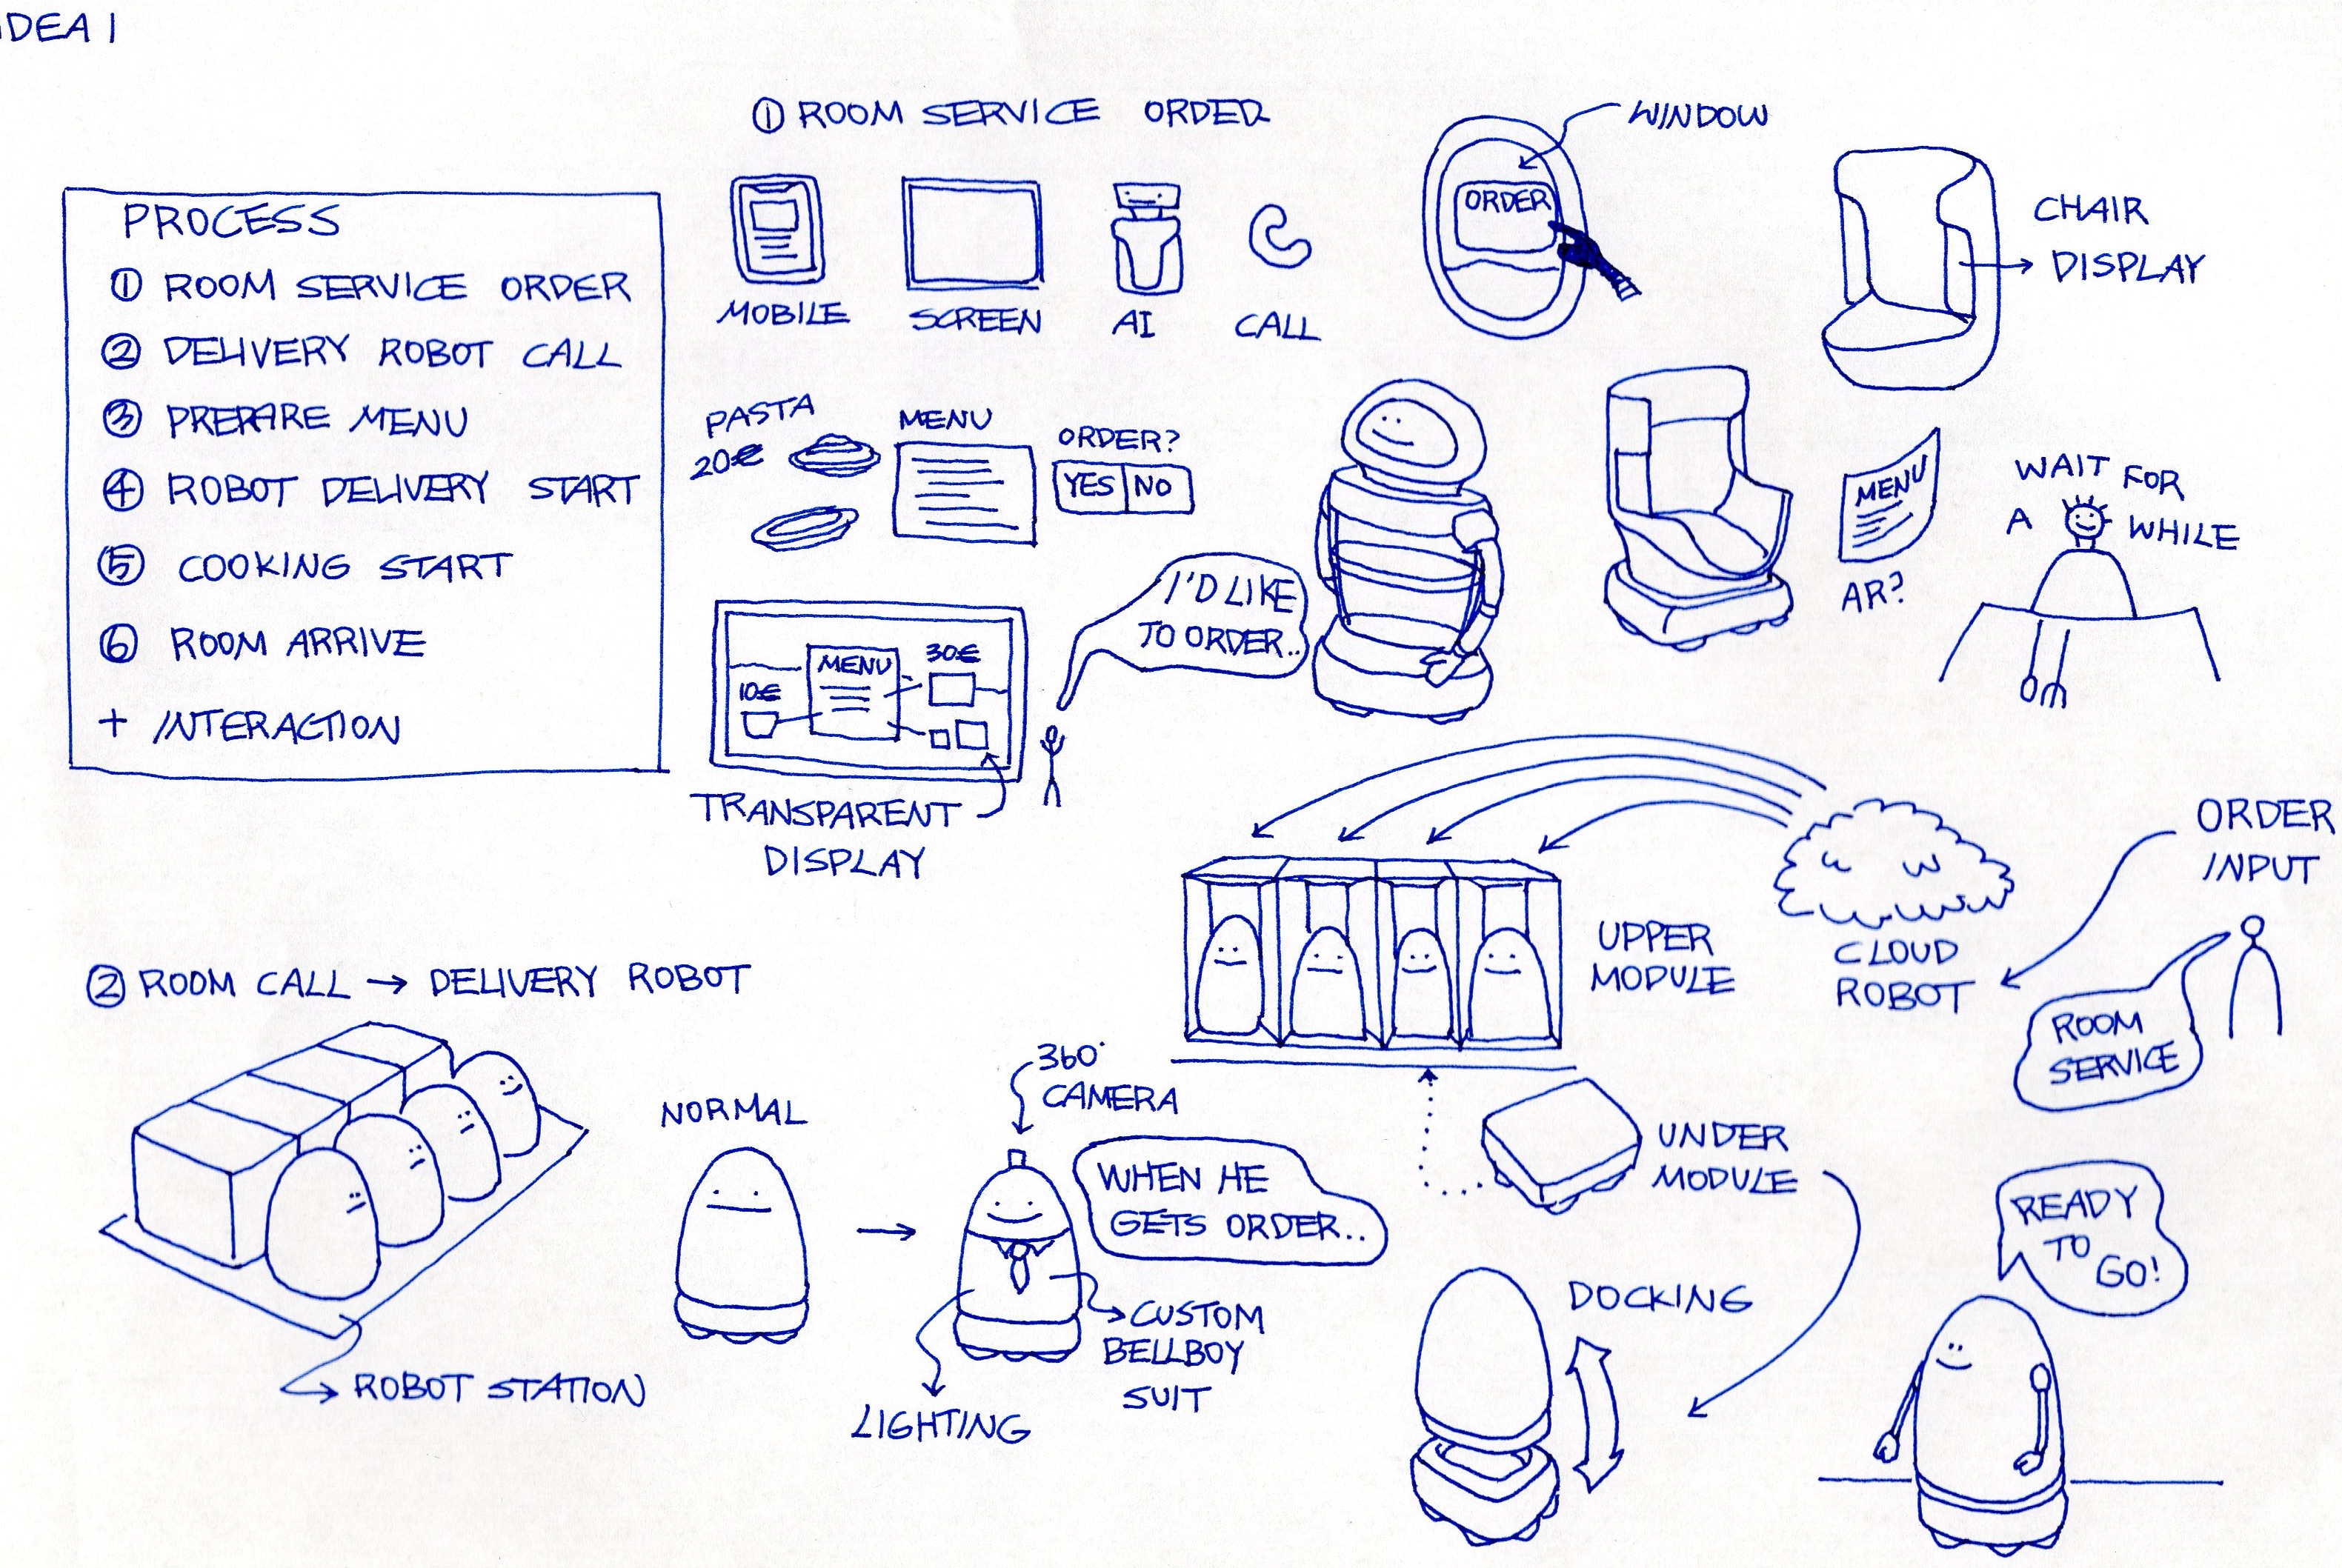 IDEA 1
PROCESS
① ROOM SERVICE ORDER
② DELIVERY ROBOT CALL
③ PREPARE MENU
④ ROBOT DELIVERY START
⑤ COOKING START
⑥ ROOM ARRIVE
+ INTERACTION
① ROOM SERVICE ORDER
MOBILE
SCREEN
AI
CALL
WINDOW
ORDER
CHAIR
DISPLAY
PASTA
20€
MENU
ORDER?
YES NO
I'D LIKE
TO ORDER..
MENU
AR?
WAIT FOR
A WHILE
MENU
10€
30€
TRANSPARENT
DISPLAY
ORDER
INPUT
CLOUD
ROBOT
ROOM
SERVICE
UPPER
MODULE
UNDER
MODULE
② ROOM CALL → DELIVERY ROBOT
ROBOT STATION
NORMAL
360°
CAMERA
WHEN HE
GETS ORDER..
CUSTOM
BELLBOY
SUIT
LIGHTING
DOCKING
READY
TO
GO!